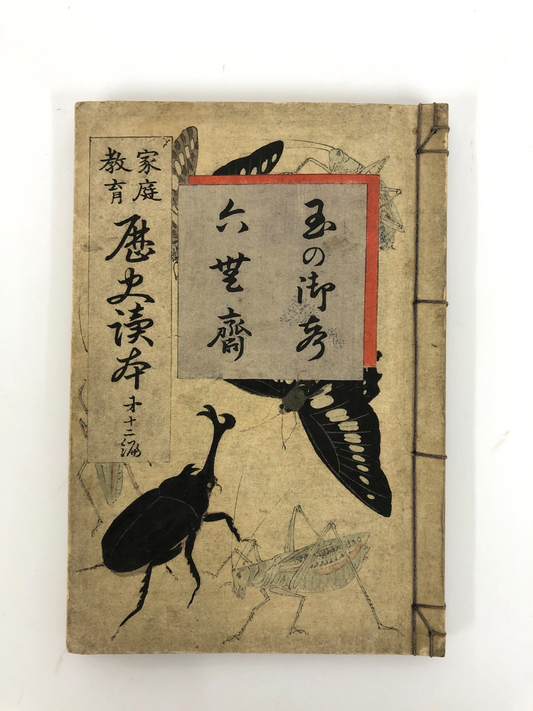 玉の御
六無齋
家庭
教育
歴史讀本 第十二編